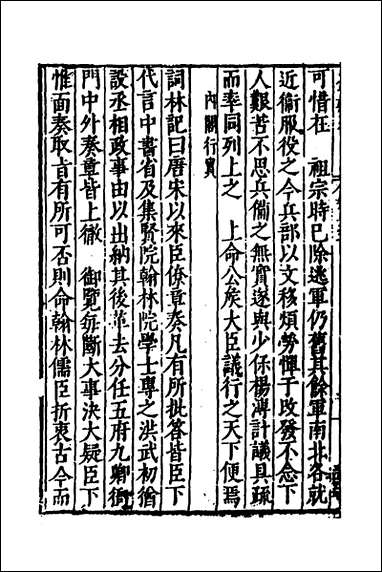 可惜在　祖宗時已除逃軍仍舊其餘軍南北各就
近衞服役之今兵部以文移煩勞憚于改發不念下
人艱苦不思兵備之無實遂與少保楊溥計議具疏
而率同列上之　上命公矦大臣議行之天下便焉
內閣行實
詞林記曰唐宋以來臣僚章奏凡有所批答皆臣下
代言中書省及集賢院翰林院學士專之洪武初猶
設丞相政事由以出納其後革去分任五府九卿衙
門中外奏章皆上徹　御覽每斷大事決大疑臣下
惟面奏取旨有所可否則命翰林儒臣折衷古今而